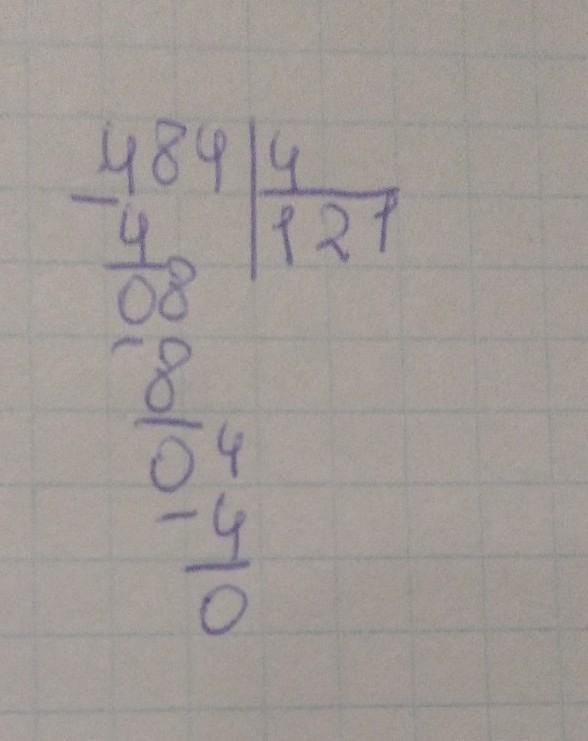 484 | 4
- 4 | 121
08
- 8
04
- 4
0